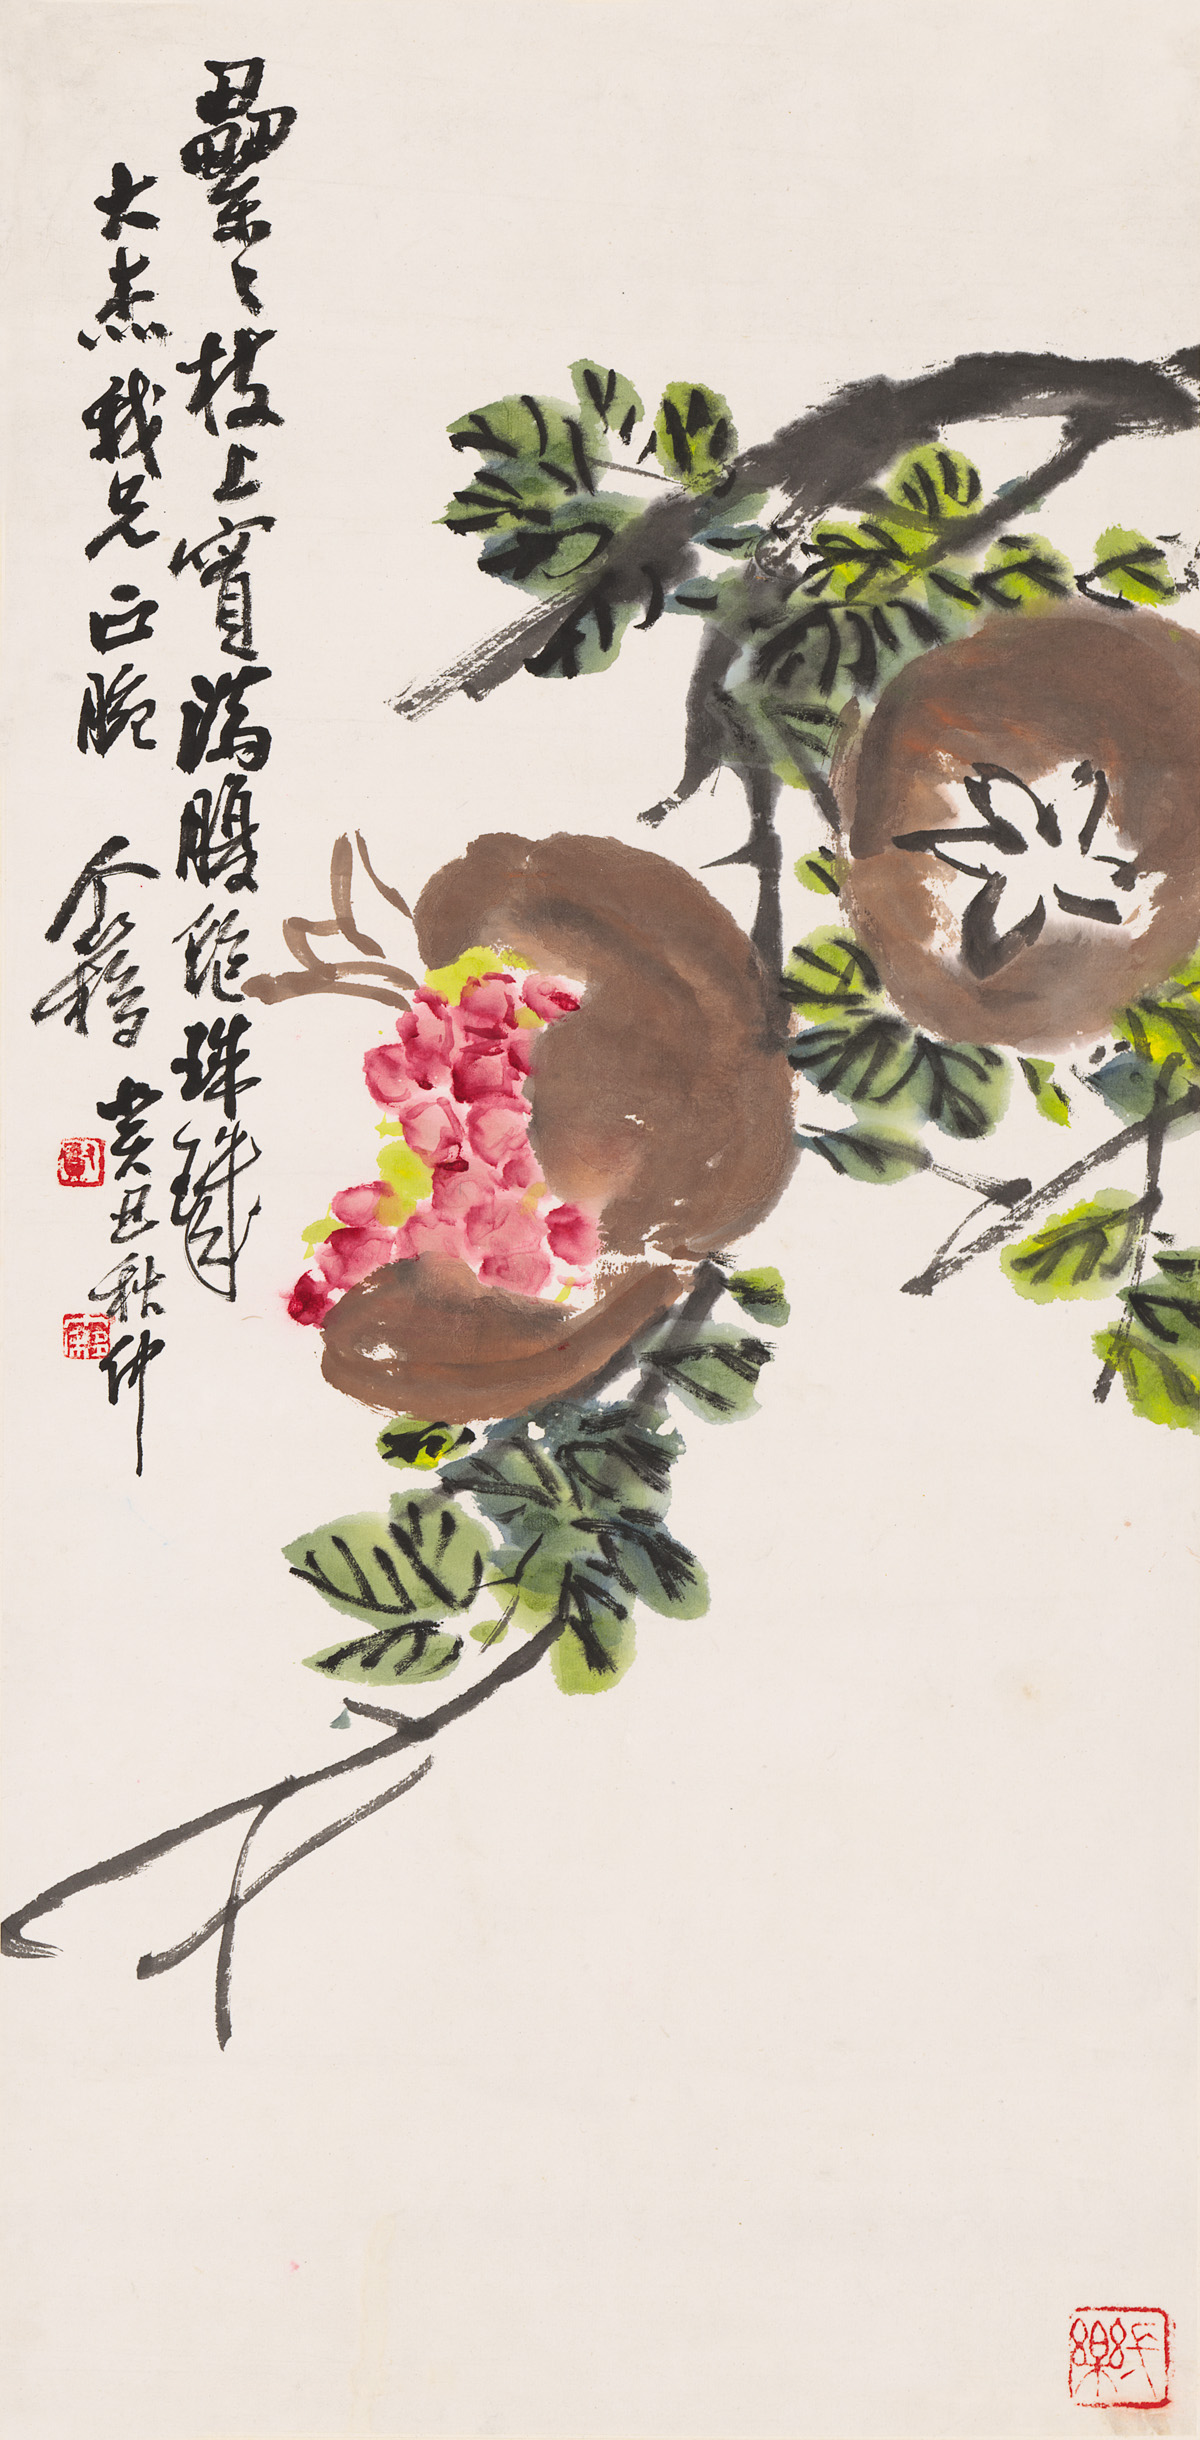 纍〻枝上實滿腹飽珠璣
大杰我兄正腕
癸丑秋仲